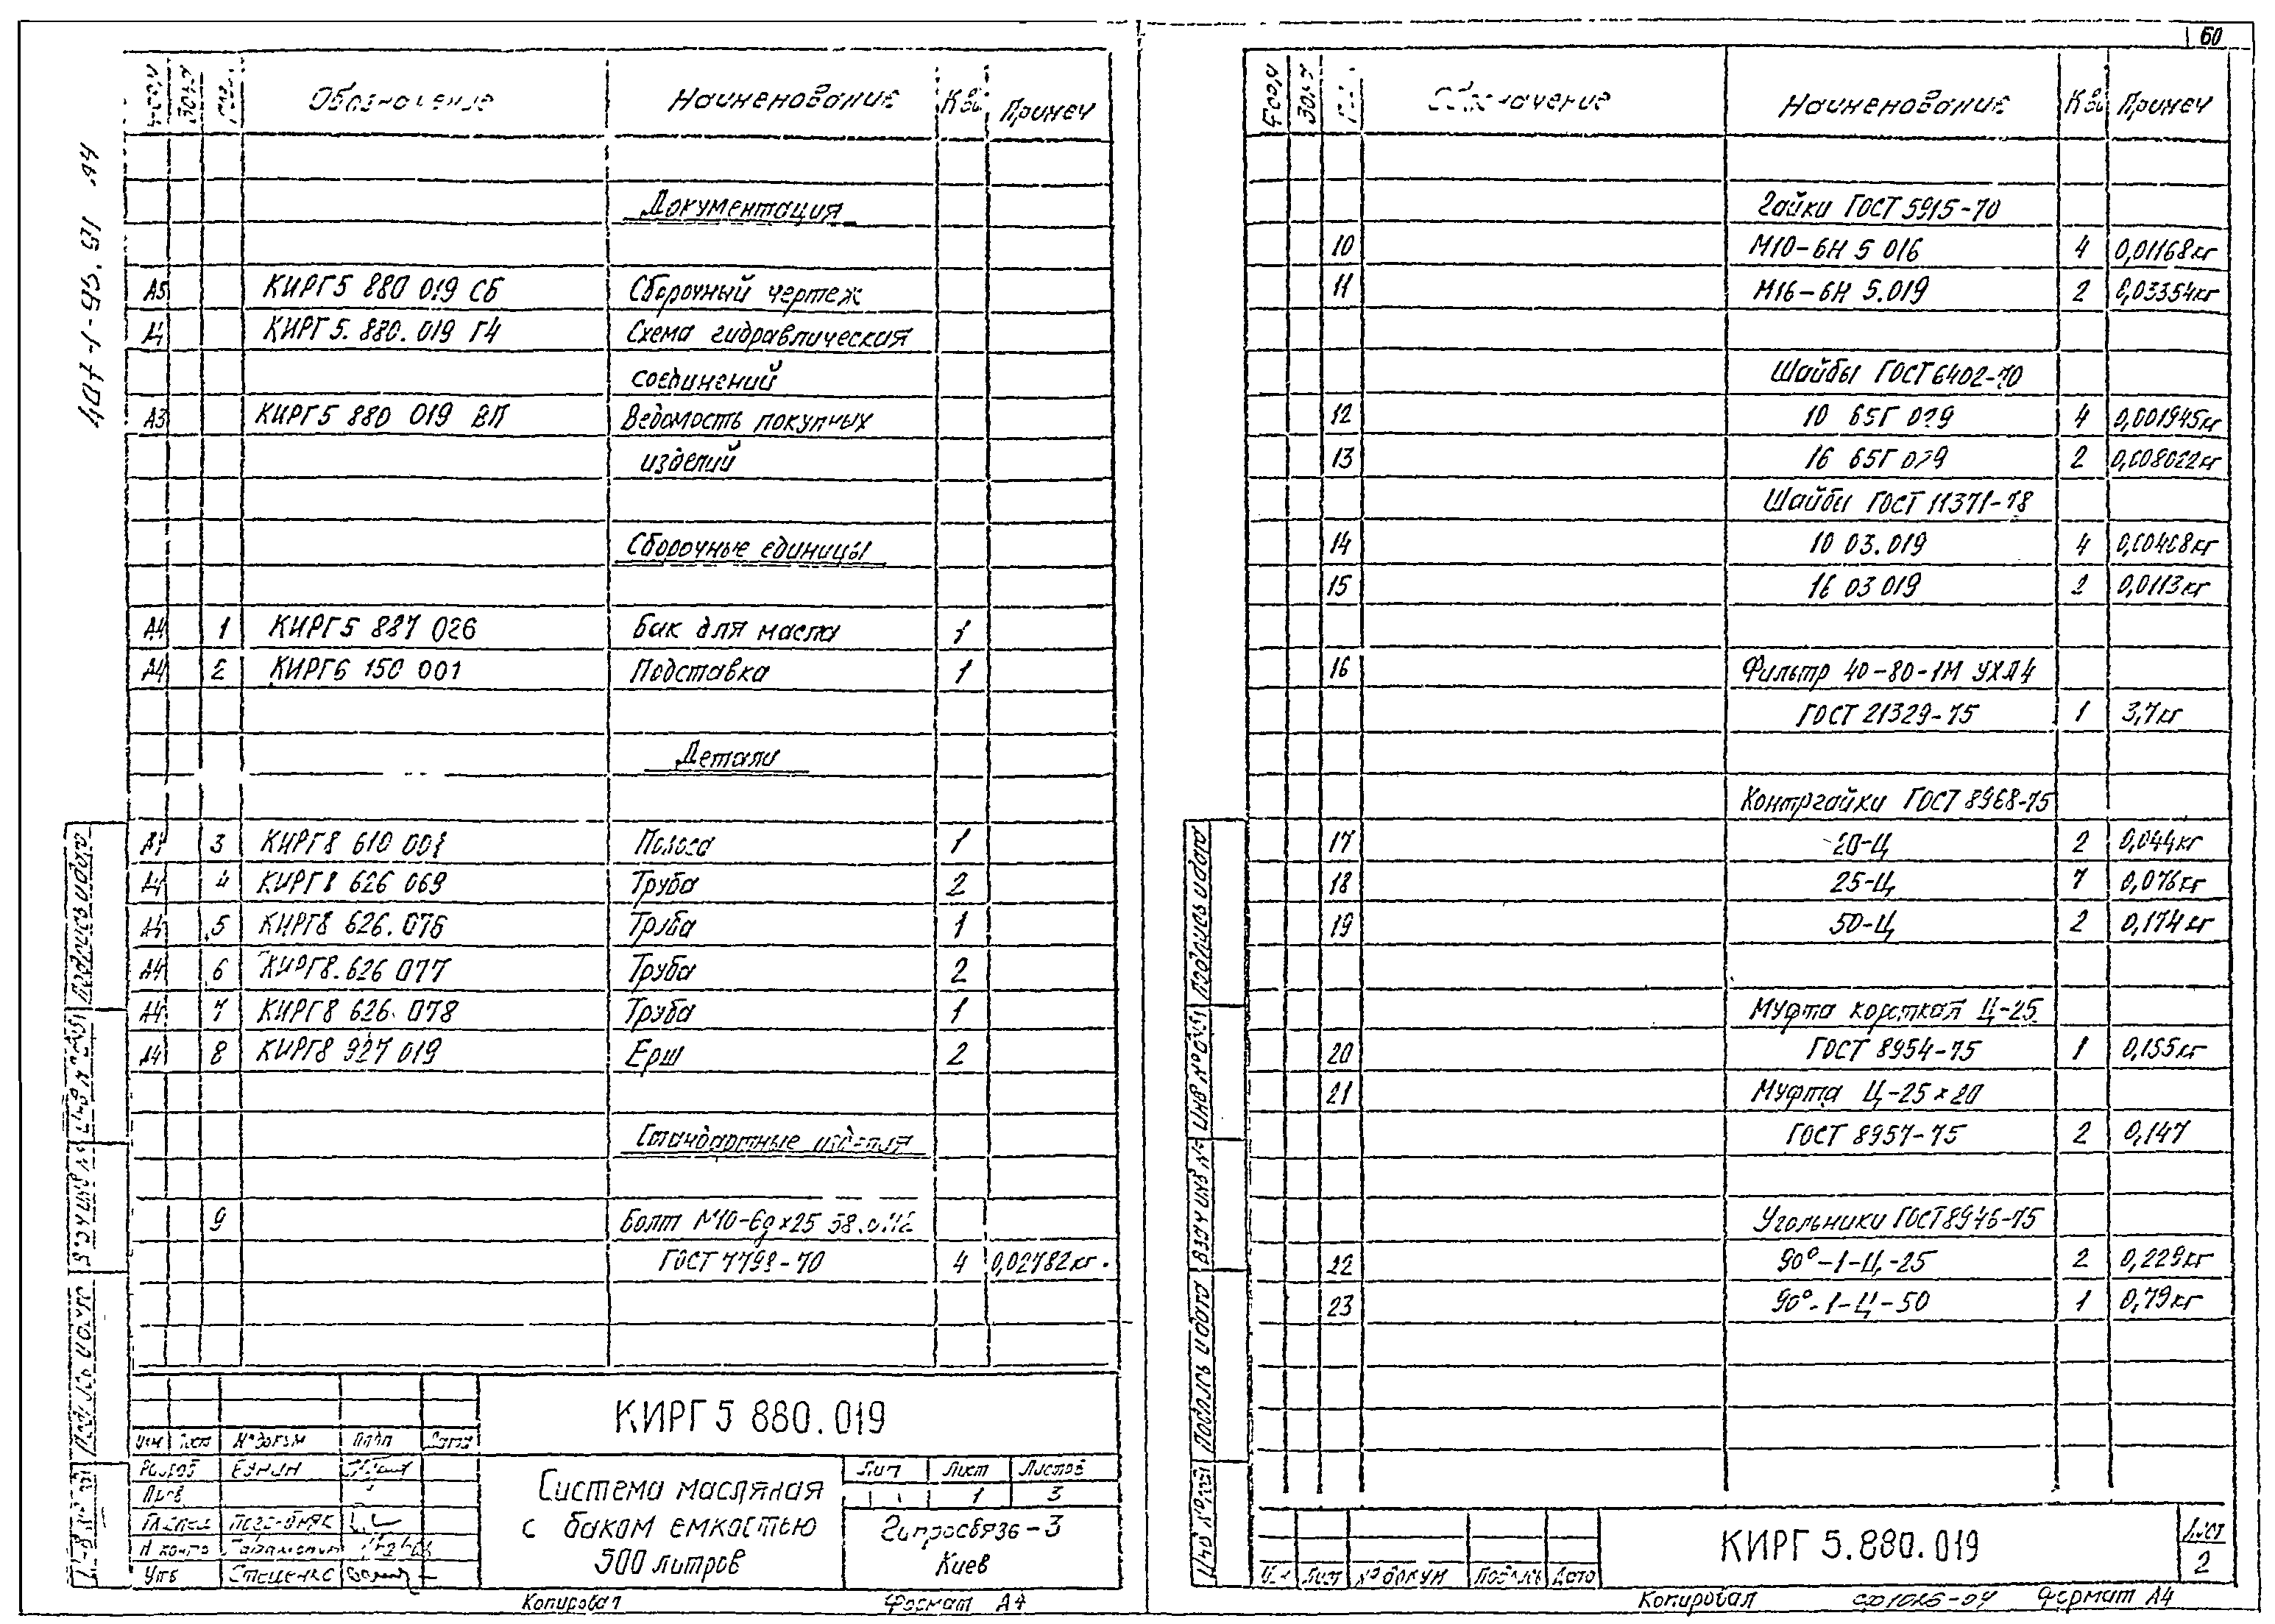 60
407-1-95. 1В А4
Форм Зона Поз. Обозначение Наименование Кол Примеч
Документация
А3 КИРГ5 880 019 СБ Сборочный чертеж
А4 КИРГ5. 880. 019 Г4 Схема гидравлическая
соединений
А3 КИРГ5 880 019 ВП Ведомость покупных
изделий
Сборочные единицы
А4 1 КИРГ5 887 026 Бак для масла 1
А4 2 КИРГ6 150 001 Подставка 1
Детали
А4 3 КИРГ8 610 001 Полоса 1
А4 4 КИРГ8 626 069 Труба 2
А4 5 КИРГ8 626. 076 Труба 1
А4 6 КИРГ8. 626 077 Труба 2
А4 7 КИРГ8 626. 078 Труба 1
А4 8 КИРГ8 927 019 Ерш 2
Стандартные изделия
9 Болт М10-6g×25 58.
ГОСТ 7798-70 4 0,02782кг.
КИРГ 5 880. 019
Изм Лист № докум Подп Дата
Разраб
Пров
Н контр
Утв Стеценко
Система масляная
с баком емкостью
500 литров
Лит Лист Листов
1 3
Гипросвязь-3
Киев
Копировал Формат А4
Форм Зона Поз. Обозначение Наименование Кол Примеч
Гайки ГОСТ 5915-70
10 М10-6Н 5 016 4 0,01168кг
11 М16-6Н 5.019 2 0,03354кг
Шайбы ГОСТ 6402-70
12 10 65Г 029 4 0,001945кг
13 16 65Г 029 2 0,008022кг
Шайбы ГОСТ 11371-78
14 10 03.019 4 0,00408кг
15 16 03 019 2 0,0113кг
16 Фильтр 40-80-1М УХЛ4
ГОСТ 21329-75 1 3,7кг
Контргайки ГОСТ 8968-75
17 20-Ц 2 0,044кг
18 25-Ц 7 0,076кг
19 50-Ц 2 0,174кг
Муфта короткая Ц-25
20 ГОСТ 8954-75 1 0,155кг
21 Муфта Ц-25×20
ГОСТ 8957-75 2 0,147
Угольники ГОСТ 8946-75
22 90°-1-Ц-25 2 0,229кг
23 90°-1-Ц-50 1 0,79кг
Инв № подл Подпись и дата Взам инв № Инв № дубл Подпись и дата
Изм Лист № докум Подпись Дата
КИРГ 5. 880. 019
Лист
2
Копировал Формат А4